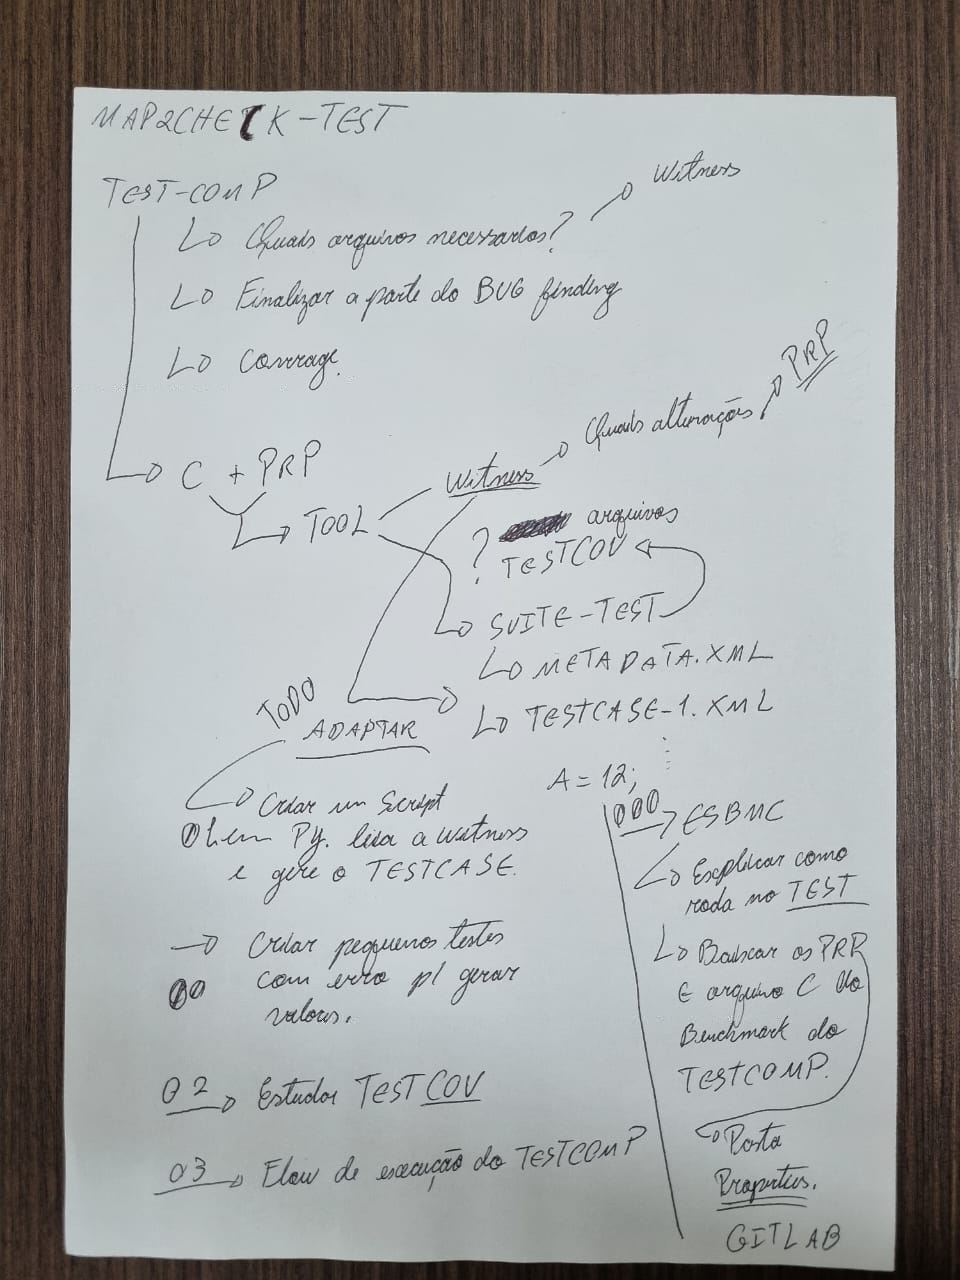 MAP2CHECK-TEST
TEST-COMP
Witness
Quais arquivos necessarios?
Finalizar a parte do BUG finding
Coverage.
PRP
Quais alterações
C + PRP
Witness
TOOL
? arquivos
TESTCOV
SUITE-TEST
METADATA.XML
TODO
ADAPTAR
TESTCASE-1.XML
A = 12;
Criar um Script
01 em PY. leia a witness
e gere o TESTCASE.
→ Criar pequenos testes
00 com erro p/ gerar
valores.
02 → Estudar TESTCOV
03 → Flow de execução do TESTCOMP
000 → ESBMC
Explicar como
roda no TEST
Baixar os PRP
E arquivo C do
Benchmark do
TESTCOMP.
Pasta
Properties.
GITLAB